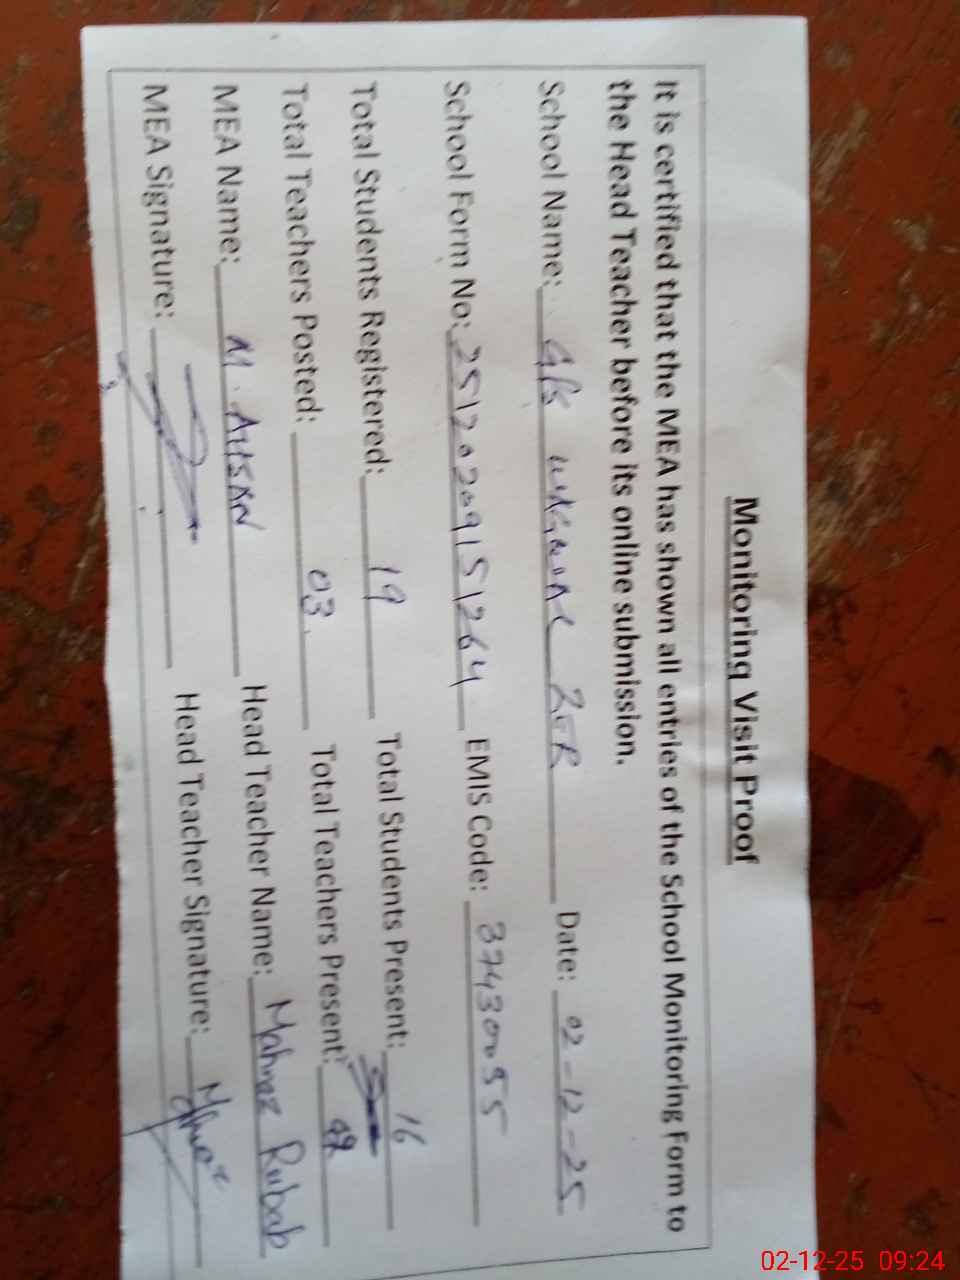 Monitoring Visit Proof
It is certified that the MEA has shown all entries of the School Monitoring Form to
the Head Teacher before its online submission.
School Name: GPS Date: 02-12-25
School Form No: 25120209151264 EMIS Code: 37430055
Total Students Registered: 19 Total Students Present: 16
Total Teachers Posted: 03 Total Teachers Present:
MEA Name: M. AHSAN Head Teacher Name: Mahroz Rubab
MEA Signature: Head Teacher Signature:
02-12-25 09:24